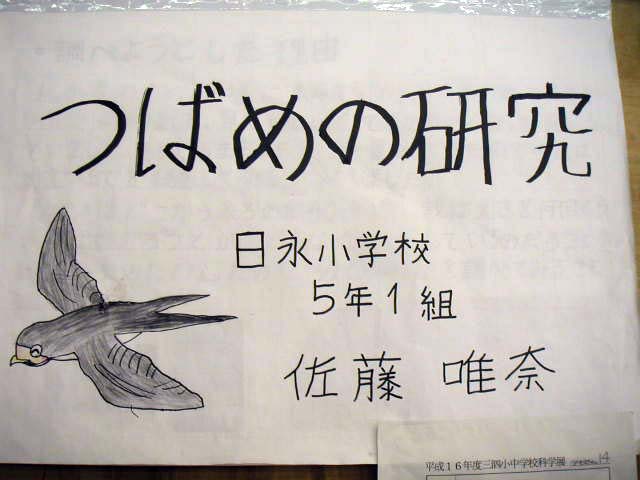 つばめの研究
日永小学校
5年1組
佐藤 唯奈
平成16年度三泗小中学校科学展
14